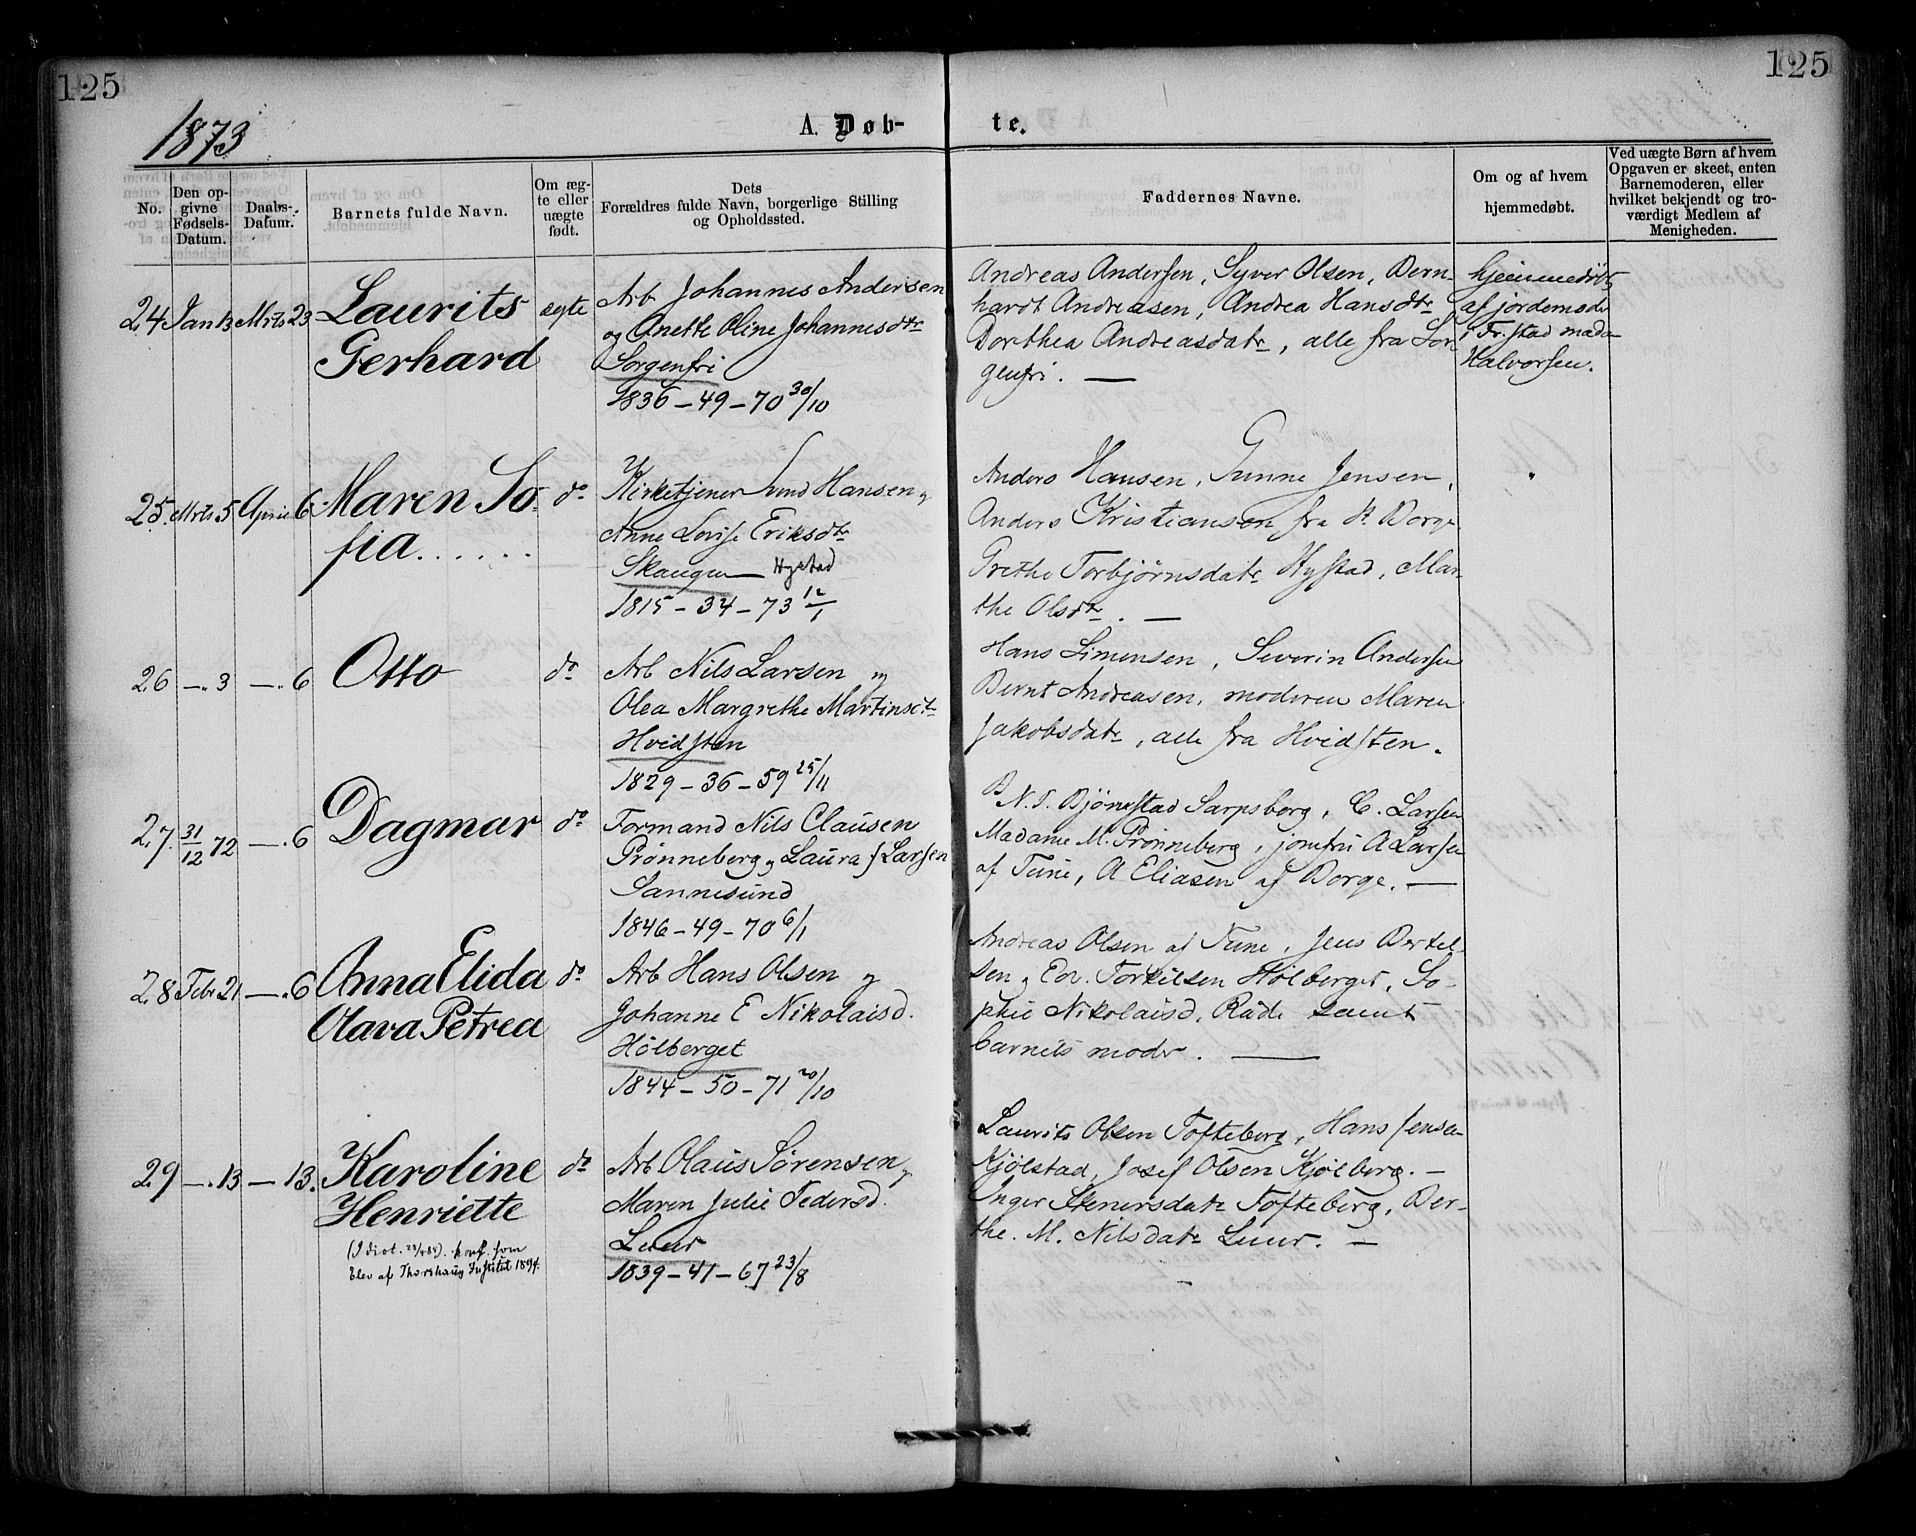 125
125
1873
A. Døb-
te.
No.
Den op-
givne
Fødsels-
Datum.
Daabs-
Datum.
Barnets fulde Navn.
Om æg-
te eller
uægte
født.
Dets
Forældres fulde Navn, borgerlige Stilling
og Opholdssted.
Faddernes Navne.
Om og af hvem
hjemmedøbt.
Ved uægte Børn af hvem
Opgaven er skeet, enten
Barnemoderen, eller
hvilket bekjendt og tro-
værdigt Medlem af
Menigheden.
24 Jan 13 Mrts 23
Laurits
Gerhard
ægte
Arb Johannes Andersen
og Anette Oline Johannesdtr
Sorgenfri
1836-49-70 30/10
Andreas Andersen, Syver Olsen, Bern
hardt Andreasen, Andrea Hansdtr
Dorthea Andreasdatr, alle fra Sor
genfri. —
hjemmedøbt
af jordemodr
i Fr.stad mada
Halvorsen.
25. Mrts 5 April 6
Maren So-
fia......
do
Kirketjener Hansen og
Anne Lovise Eriksdtr
Skaugen Hystad
1815-34-73 12/1
Anders Hansen, Gunne Jensen,
Anders Kristiansen fra St. Borge
Grethe Torbjørnsdatr Hystad, Mar-
the Olsdtr. —
26 —. 3 —. 6
Otto
do
Arb Nils Larsen og
Olea Margrethe Martinsdtr
Hvidsten
1829-36-59 25/11
Hans Simensen, Severin Andersen
Bernt Andreasen, moderen Maren
Jakobsdatr, alle fra Hvidsten.
27. 31/12 72 —. 6
Dagmar
do
Formand Nils Clausen
Prønneberg og Laura J Larsen
Sannesund
1846-49-70 6/1
N. T. Bjønstad Sarpsborg, C. Larsen
Madame M. Prønneberg, jomfru A Larsen
af Tune, A Eliasen af Borge. —
28 Febr 21 —. 6
Anna Elida
Olava Petrea
do
Arb Hans Olsen og
Johanne E Nikolaisd.
Hølberget
1844-50-71 20/10
Andreas Olsen af Tune, Jens Bertel-
sen, Ed. Torkilsen Hølberget, So-
phie Nikolaisd, Råde samt
barnets modr. —
29 —. 13 — 13.
Karoline
Henriette
(Idiot. 23/4 84). konf. som
Elev af Thorshaug Institut 1894.
do
Arb Olaus Sørensen og
Maren Julie Pedersd.
Luur
1839-41-67 23/8
Laurits Olsen Tofteberg, Hans Jensen
Kjølstad, Josef Olsen Kjølberg. —
Inger Stenersdatr Tofteberg, Ber-
the. M. Nilsdatr Luur. —